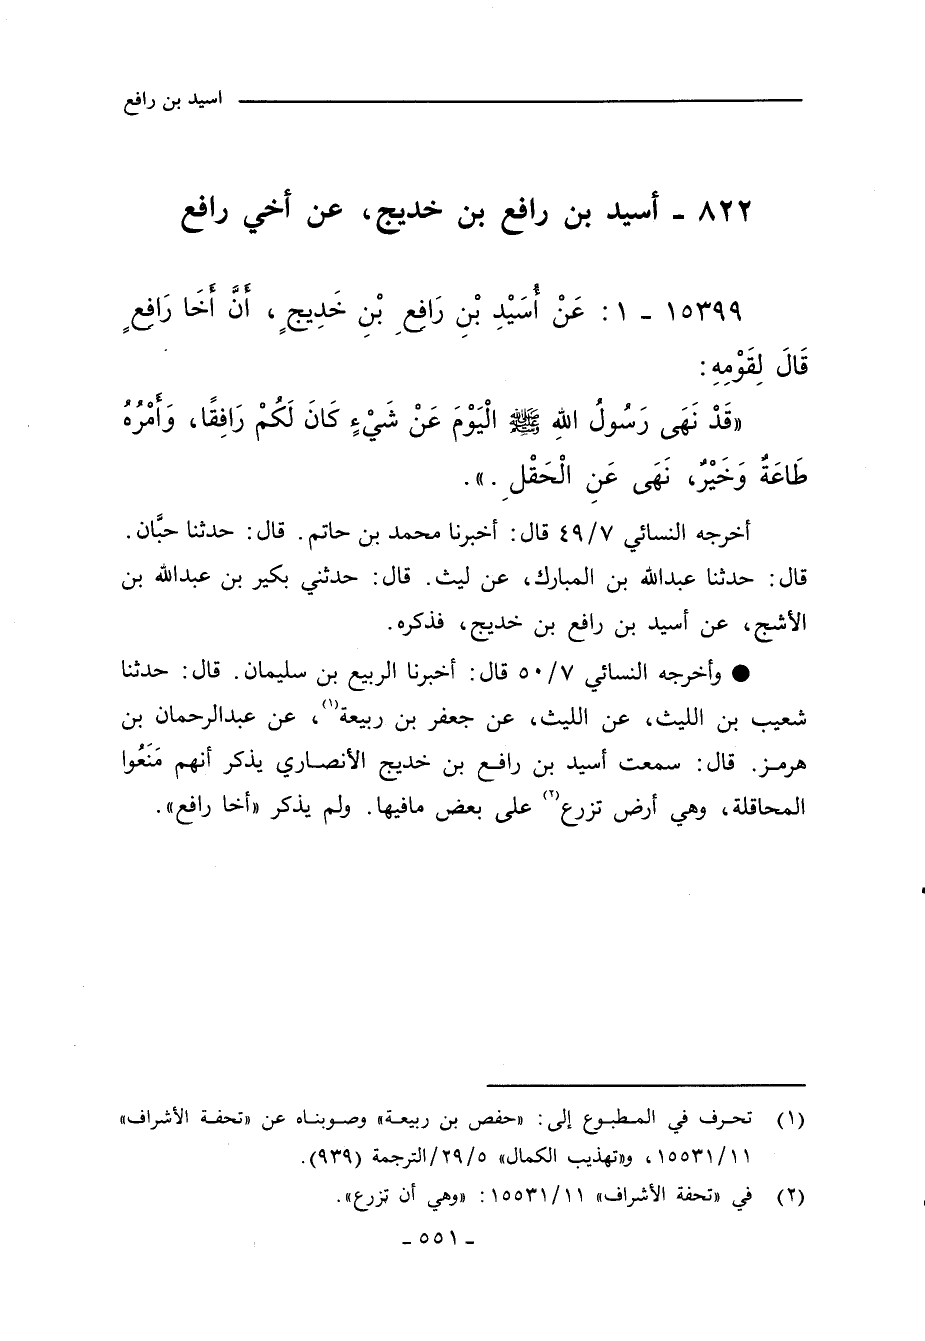 اسيد بن رافع
٨٢٢ ـ أسيد بن رافع بن خديج، عن أخي رافع
١٥٣٩٩ ـ ١ : عَنْ أُسَيْدِ بْنِ رَافِعِ بْنِ خَدِيجٍ، أَنَّ أَخَا رَافِعٍ
قَالَ لِقَوْمِهِ:
«قَدْ نَهَى رَسُولُ اللهِ ﷺ الْيَوْمَ عَنْ شَيْءٍ كَانَ لَكُمْ رَافِقًا، وَأَمْرُهُ
طَاعَةٌ وَخَيْرٌ، نَهَى عَنِ الْحَقْلِ .».
أخرجه النسائي ٤٩/٧ قال: أخبرنا محمد بن حاتم. قال: حدثنا حبَّان.
قال: حدثنا عبدالله بن المبارك، عن ليث. قال: حدثني بكير بن عبدالله بن
الأشج، عن أسيد بن رافع بن خديج، فذكره.
● وأخرجه النسائي ٥٠/٧ قال: أخبرنا الربيع بن سليمان. قال: حدثنا
شعيب بن الليث، عن الليث، عن جعفر بن ربيعة(١)، عن عبدالرحمان بن
هرمز. قال: سمعت أسيد بن رافع بن خديج الأنصاري يذكر أنهم مَنَعُوا
المحاقلة، وهي أرض تزرع(٢) على بعض مافيها. ولم يذكر «أخا رافع».
(١) تحرف في المطبوع إلى: «حفص بن ربيعة» وصوبناه عن «تحفة الأشراف»
١٥٥٣١/١١، و«تهذيب الكمال» ٢٩/٥/الترجمة (٩٣٩).
(٢) في «تحفة الأشراف» ١٥٥٣١/١١: «وهي أن تزرع».
ـ ٥٥١ ـ